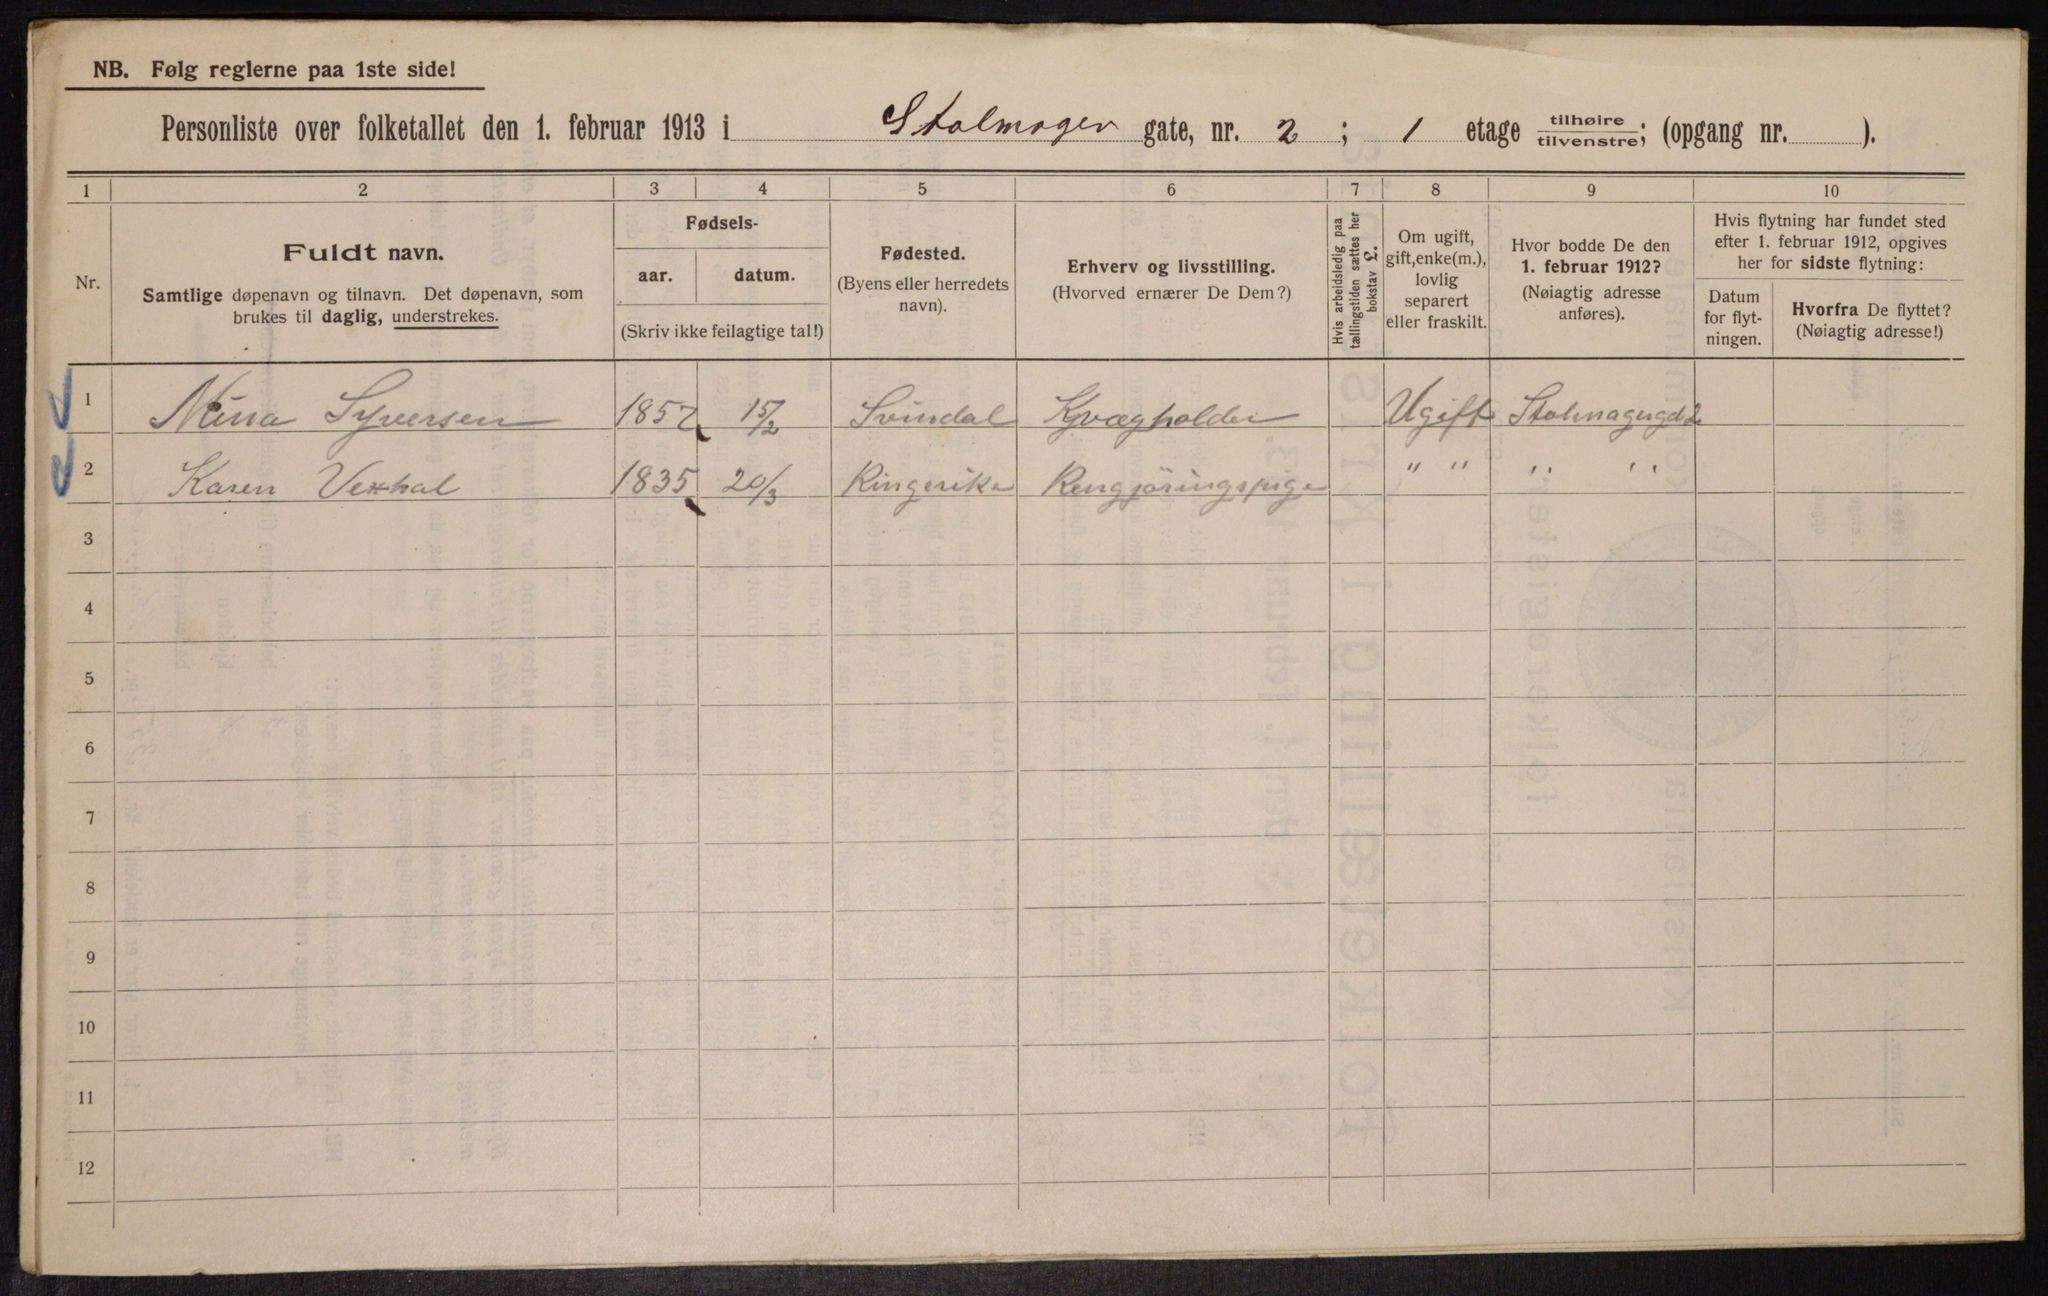 NB. Følg reglerne paa 1ste side!
Personliste over folketallet den 1. februar 1913 i Stolmager gate, nr. 2 ; 1 etage tilhøire tilvenstre; (opgang nr. ).
1 2 3 4 5 6 7 8 9 10
Nr.
Fuldt navn.
Samtlige døpenavn og tilnavn. Det døpenavn, som
brukes til daglig, understrekes.
Fødsels-
aar. datum.
(Skriv ikke feilagtige tal!)
Fødested.
(Byens eller herredets
navn).
Erhverv og livsstilling.
(Hvorved ernærer De Dem?)
Hvis arbeidsledig paa
tællingstiden sættes her
bokstav L.
Om ugift,
gift, enke(m.),
lovlig
separert
eller fraskilt.
Hvor bodde De den
1. februar 1912?
(Nøiagtig adresse
anføres).
Hvis flytning har fundet sted
efter 1. februar 1912, opgives
her for sidste flytning:
Datum
for flyt-
ningen.
Hvorfra De flyttet?
(Nøiagtig adresse!)
1 Nina Syversen 1857 15/2 Svindal Kvægholder Ugift Stolmagergd 2
2 Karen Vexhal 1835 20/3 Ringerike Rengjøringspige " " " "
3
4
5
6
7
8
9
10
11
12